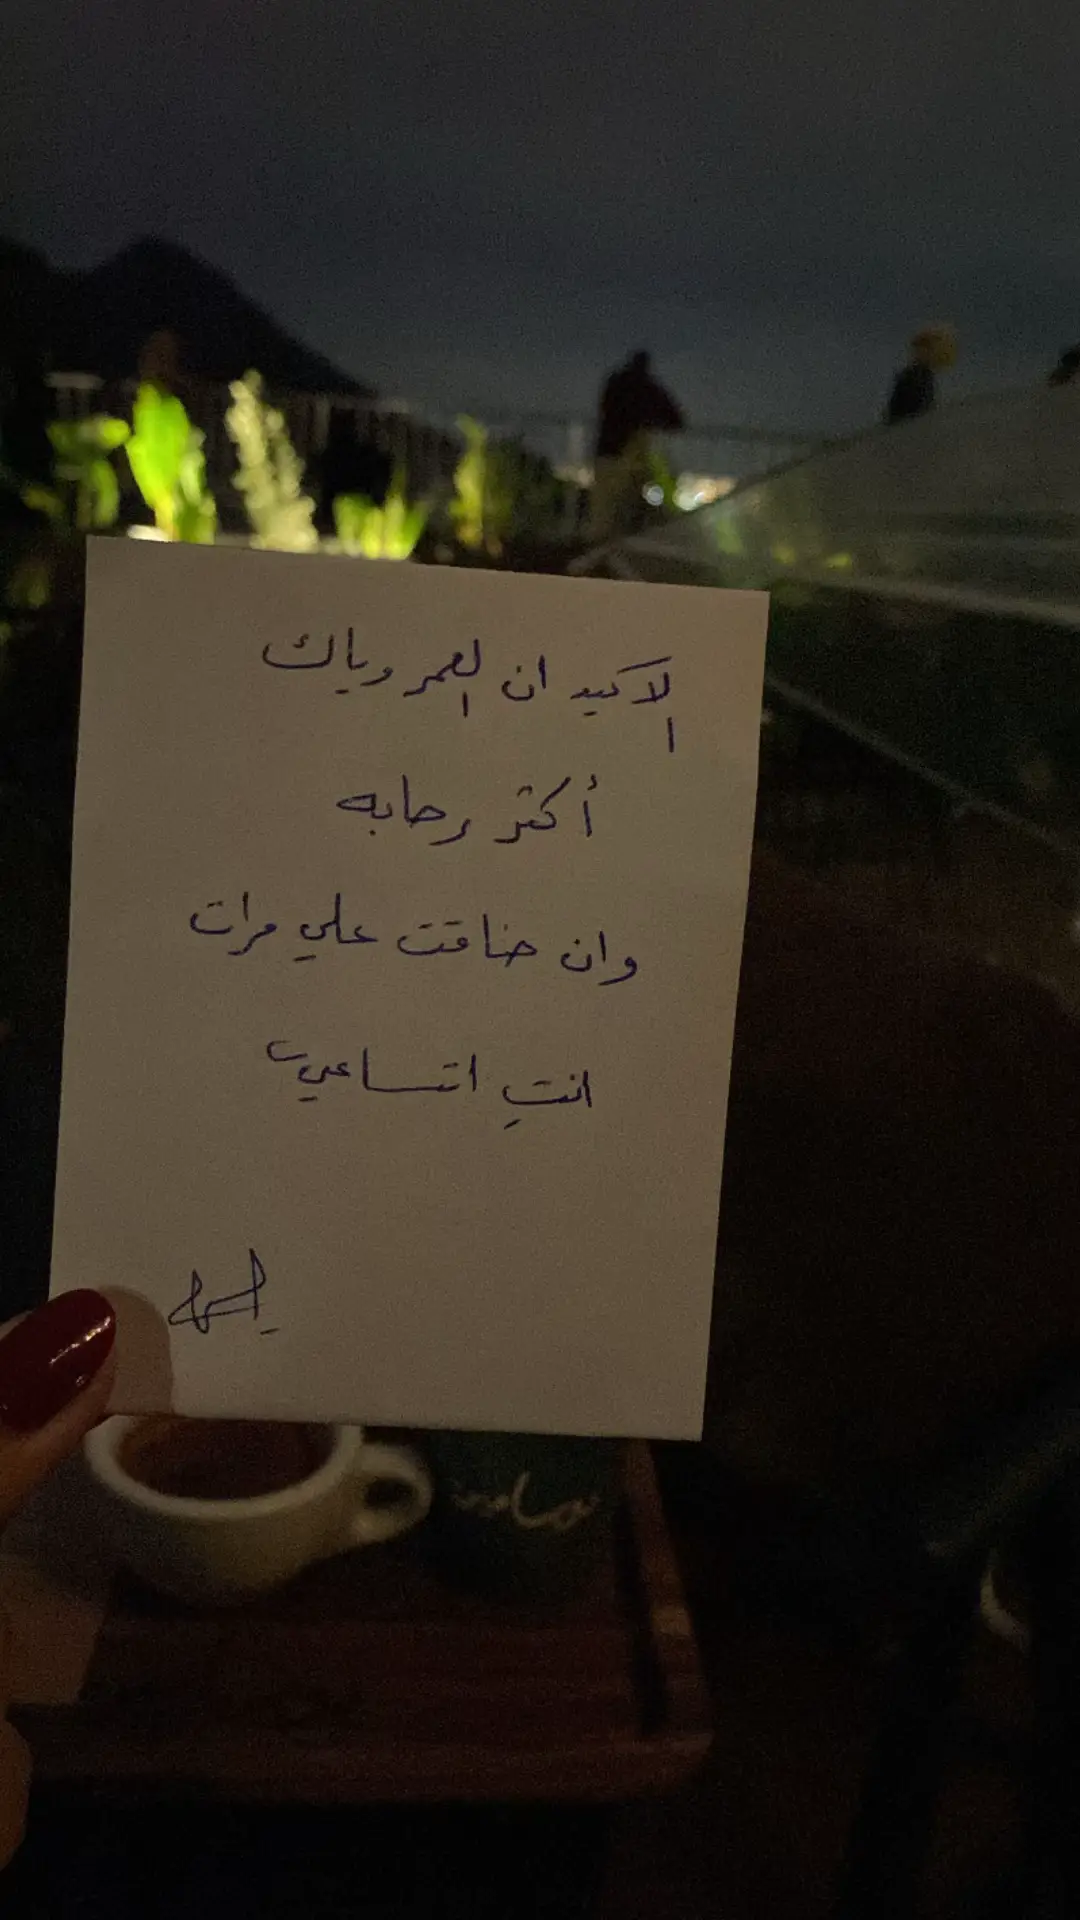 الاكيد ان العمر وياك
أكثر رحابه
وان ضاقت علي مرات
انتِ اتساعي